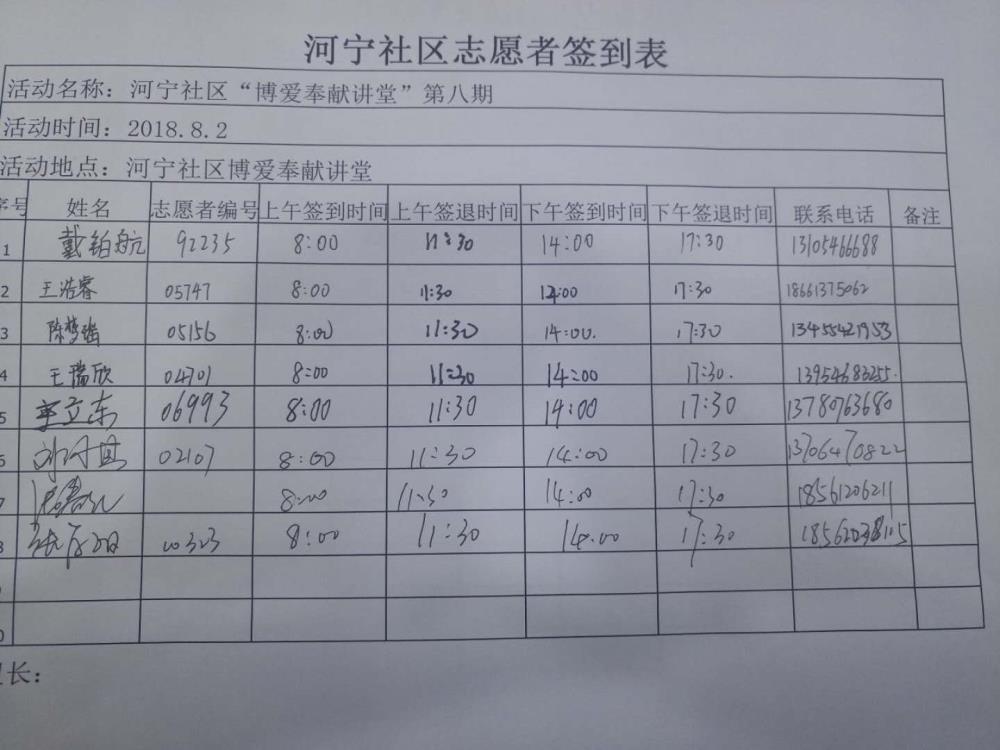 河宁社区志愿者签到表
活动名称：河宁社区“博爱奉献讲堂”第八期
活动时间：2018.8.2
活动地点：河宁社区博爱奉献讲堂
序号 姓名 志愿者编号 上午签到时间 上午签退时间 下午签到时间 下午签退时间 联系电话 备注
1 戴铂航 92235 8:00 11:30 14:00 17:30 13105466688
2 王浩睿 05747 8:00 11:30 14:00 17:30 18661375062
3 陈梦瑶 05156 8:00 11:30 14:00. 17:30 13455421953
4 王瑞欣 04701 8:00 11:30 14:00 17:30. 13954683255.
5 李立东 06993 8:00 11:30 14:00 17:30 13780763680
6 02107 8:00 11:30 14:00 17:30 13706470822
7 8:00 11:30 14:00 17:30 18561206211
8 00323 8:00 11:30 14:00 17:30
长：